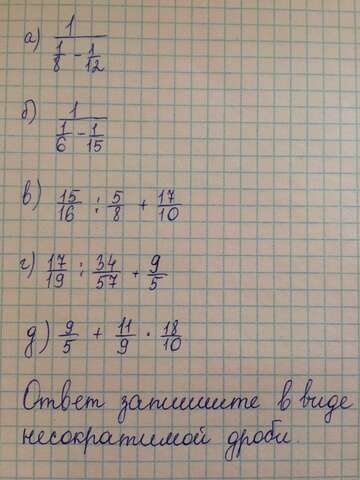 а) 1/(1/8 - 1/12)
б) 1/(1/6 - 1/15)
в) 15/16 : 5/8 + 17/10
г) 17/19 : 34/57 + 9/5
д) 9/5 + 11/9 · 18/10
Ответ запишите в виде
несократимой дроби.